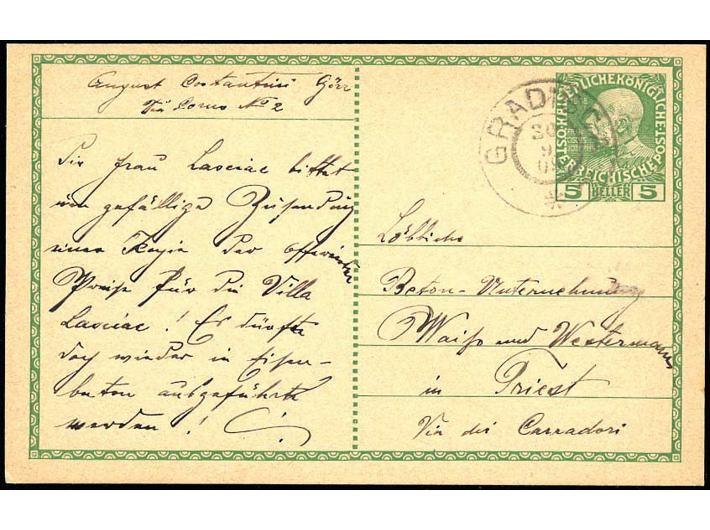 August Costantini Görz
Via Corno No 2
Die Frau Lasciac bittet
um gefällige Zusendung
einer Kopie der offerierten
Preise für die Villa
Lasciac! Es dürfte
doch wieder in Eisen-
beton ausgeführt
werden!
GRAD
30
9
09
KAISERLICHE KÖNIGLICHE ÖSTERREICHISCHE POST
5 HELLER 5
Löbliche
Beton-Unternehmung
Waiss und Westermann
in Triest
Via dei Carradori